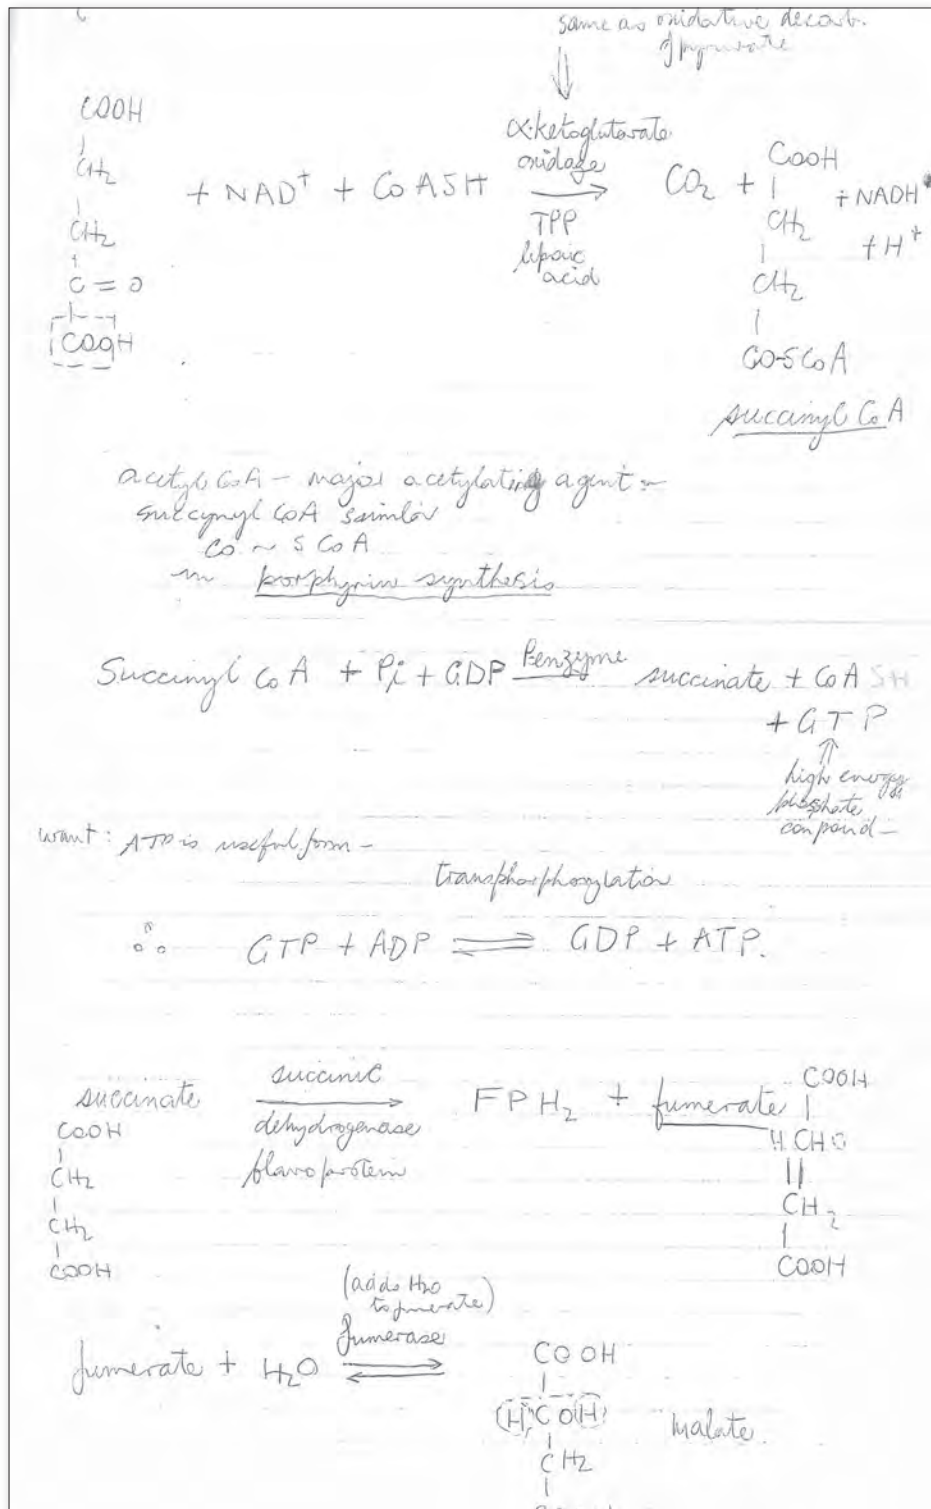 same as oxidative decarb.
of pyruvate
⇓
COOH
CH2
CH2
C = O
COOH
+ NAD+ + CoASH
α-ketoglutarate
oxidase
→
TPP
lipoic
acid
CO2 +
COOH
CH2
CH2
CO-SCoA
+ NADH
+ H+
succinyl CoA
acetyl CoA – major acetylating agent –
succynyl CoA similar
CO ~ S CoA
in porphyrine synthesis
Succinyl CoA + Pi + GDP P-enzyme → succinate + CoA SH
+ GTP
⇑
high energy
phosphate
compound –
want: ATP is useful form –
transphosphorylation
∴ GTP + ADP ⇌ GDP + ATP.
succinate
COOH
CH2
CH2
COOH
succinic
→
dehydrogenase
flavoprotein
FPH2 + fumerate
COOH
H CHO
||
CH2
COOH
(adds H2O
to fumerate)
fumerase
fumerate + H2O ⇌
COOH
H C OH
CH2
malate.